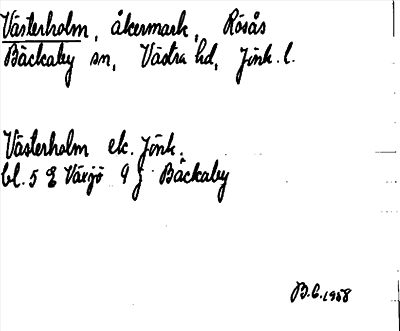 Västerholm, åkermark, Rösås
Bäckaby sn, Västra hd, Jönk. l.
Västerholm ek. Jönk.
bl. 5 E Växjö 9 j Bäckaby
B.C. 1958